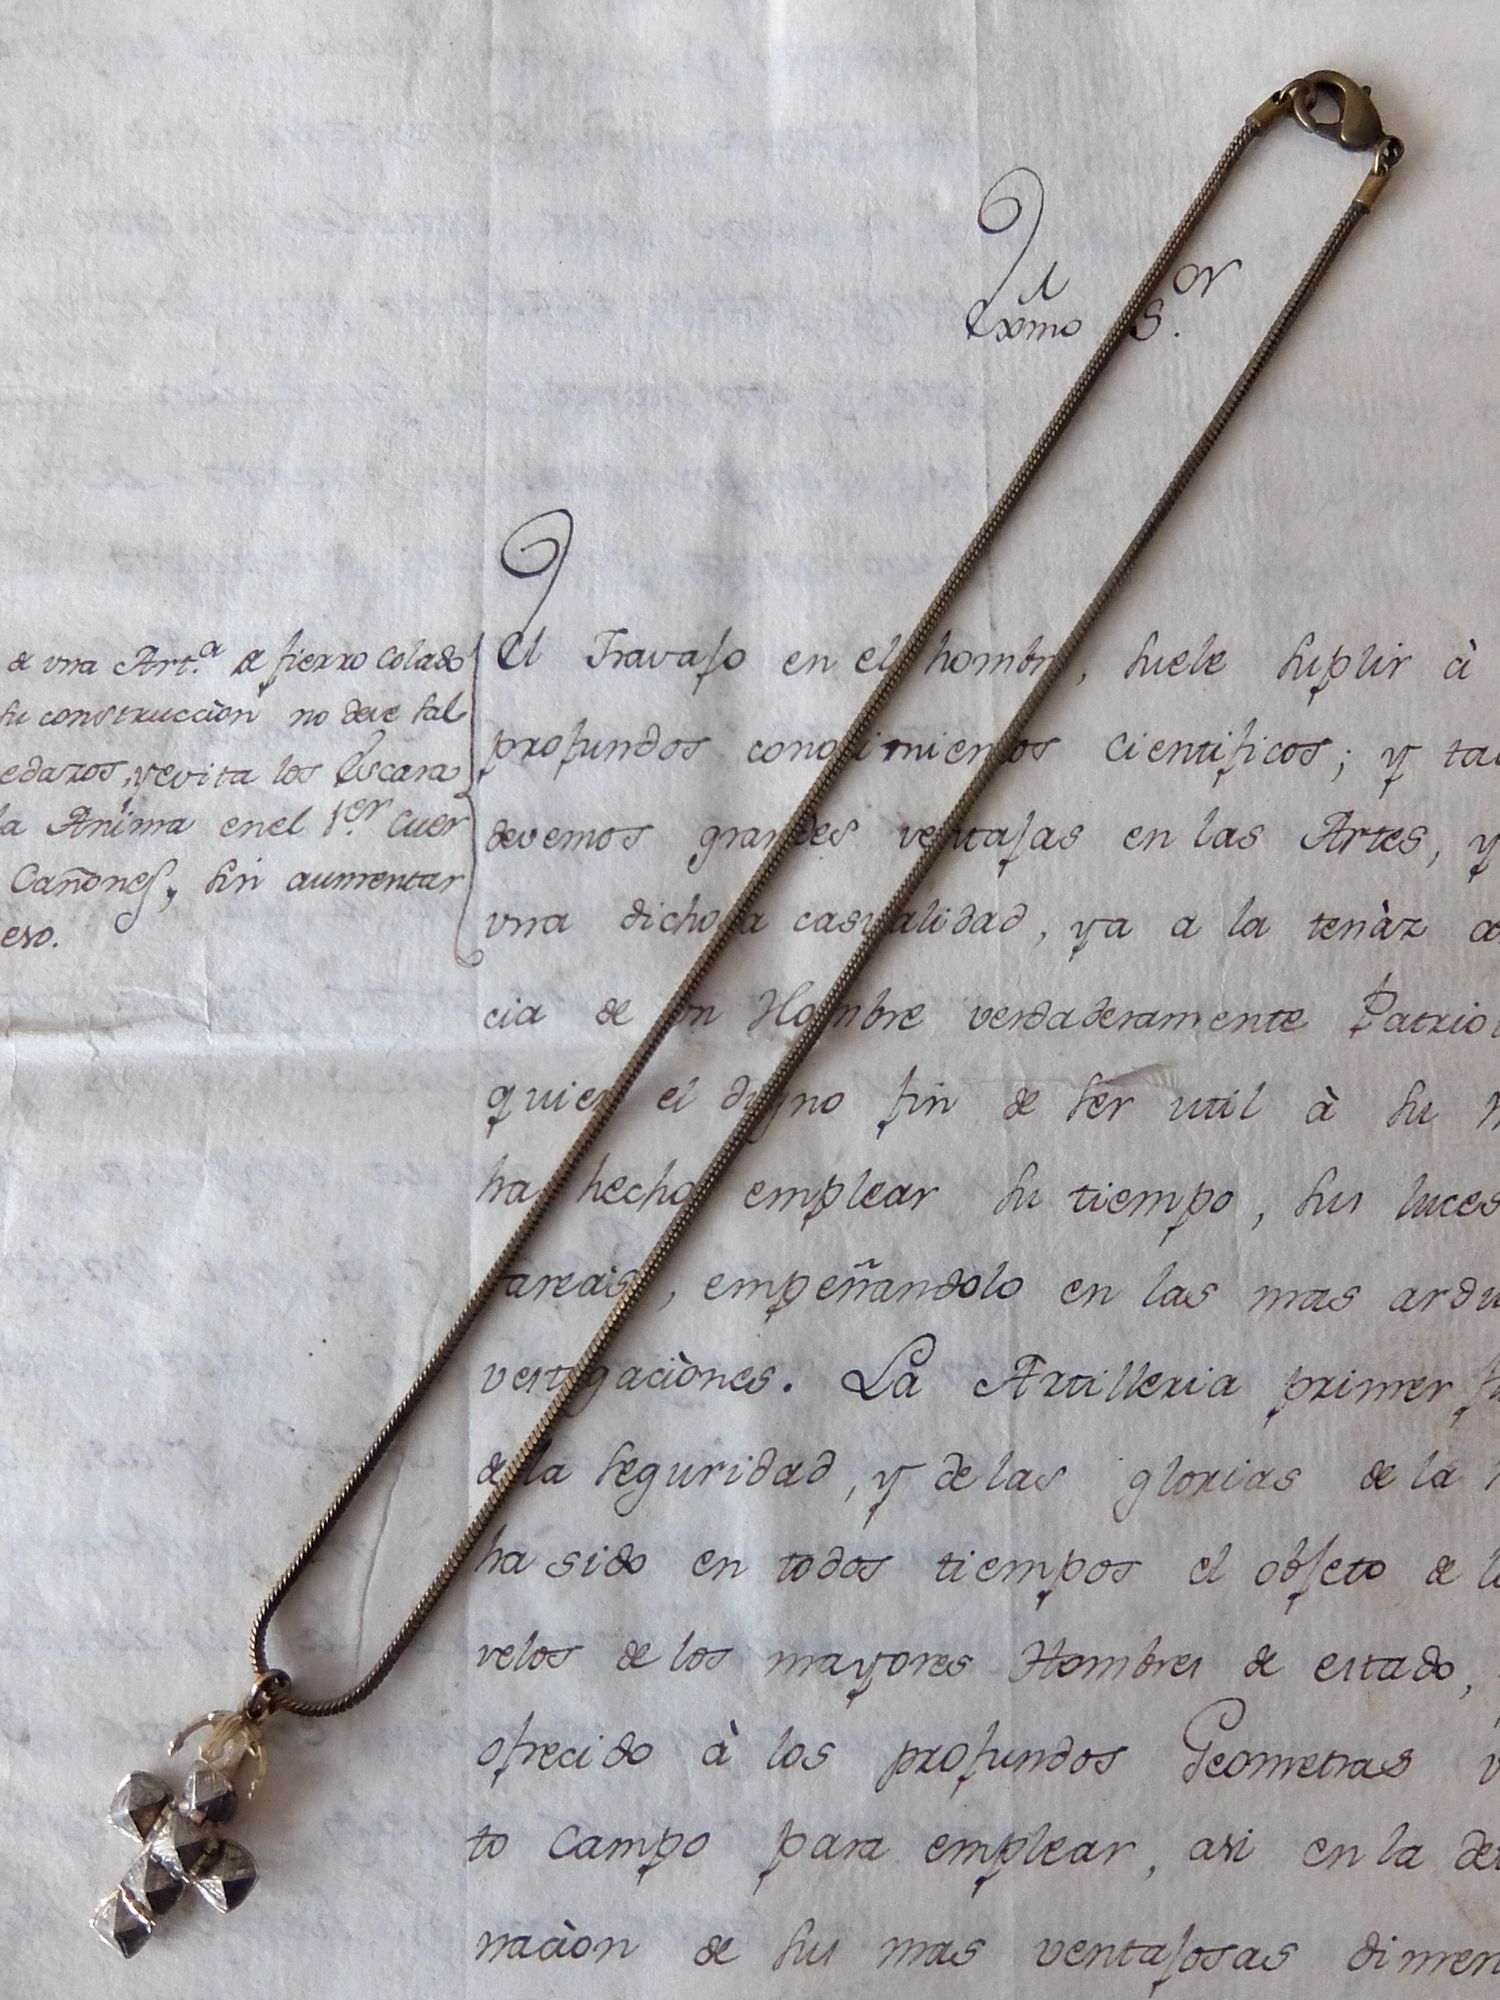 Exmo S.or
de una Art.a de fierro colado
su construcciòn no deve sal
edazos, y evita los Escara
la Anima en el 1.er Cuer
Cañones, sin aumentar
eso.
El Travajo en el hombre, suele suplir à
profundos conocimientos cientificos; y tal
devemos grandes ventajas en las Artes, y
una dichosa casualidad, ya a la tenàz
cia de un Hombre verdaderamente Patrio
quien el digno fin de ser util à su
ha hecho emplear su tiempo, sus luces
tareas, empeñandolo en las mas ardu
vestigaciònes. La Artilleria primer
de la seguridad, y de las glorias de la
ha sido en todos tiempos el objeto de l
velos de los mayores Hombres de estado,
ofrecido à los profundos Geometras v
to campo para emplear, asi en la de
naciòn de sus mas ventajosas dimen